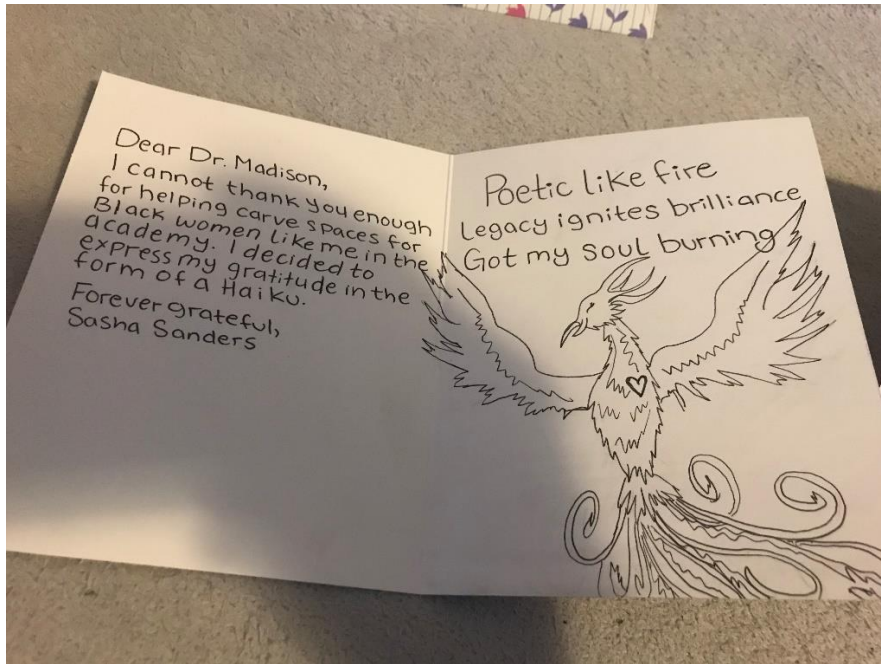 Dear Dr. Madison,
I cannot thank you enough
for helping carve spaces for
Black women like me in the
academy. I decided to
express my gratitude in the
form of a Haiku.
Forever grateful,
Sasha Sanders
Poetic like fire
Legacy ignites brilliance
Got my soul burning